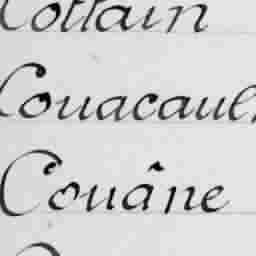 Cottain
Couacaul
Couâne